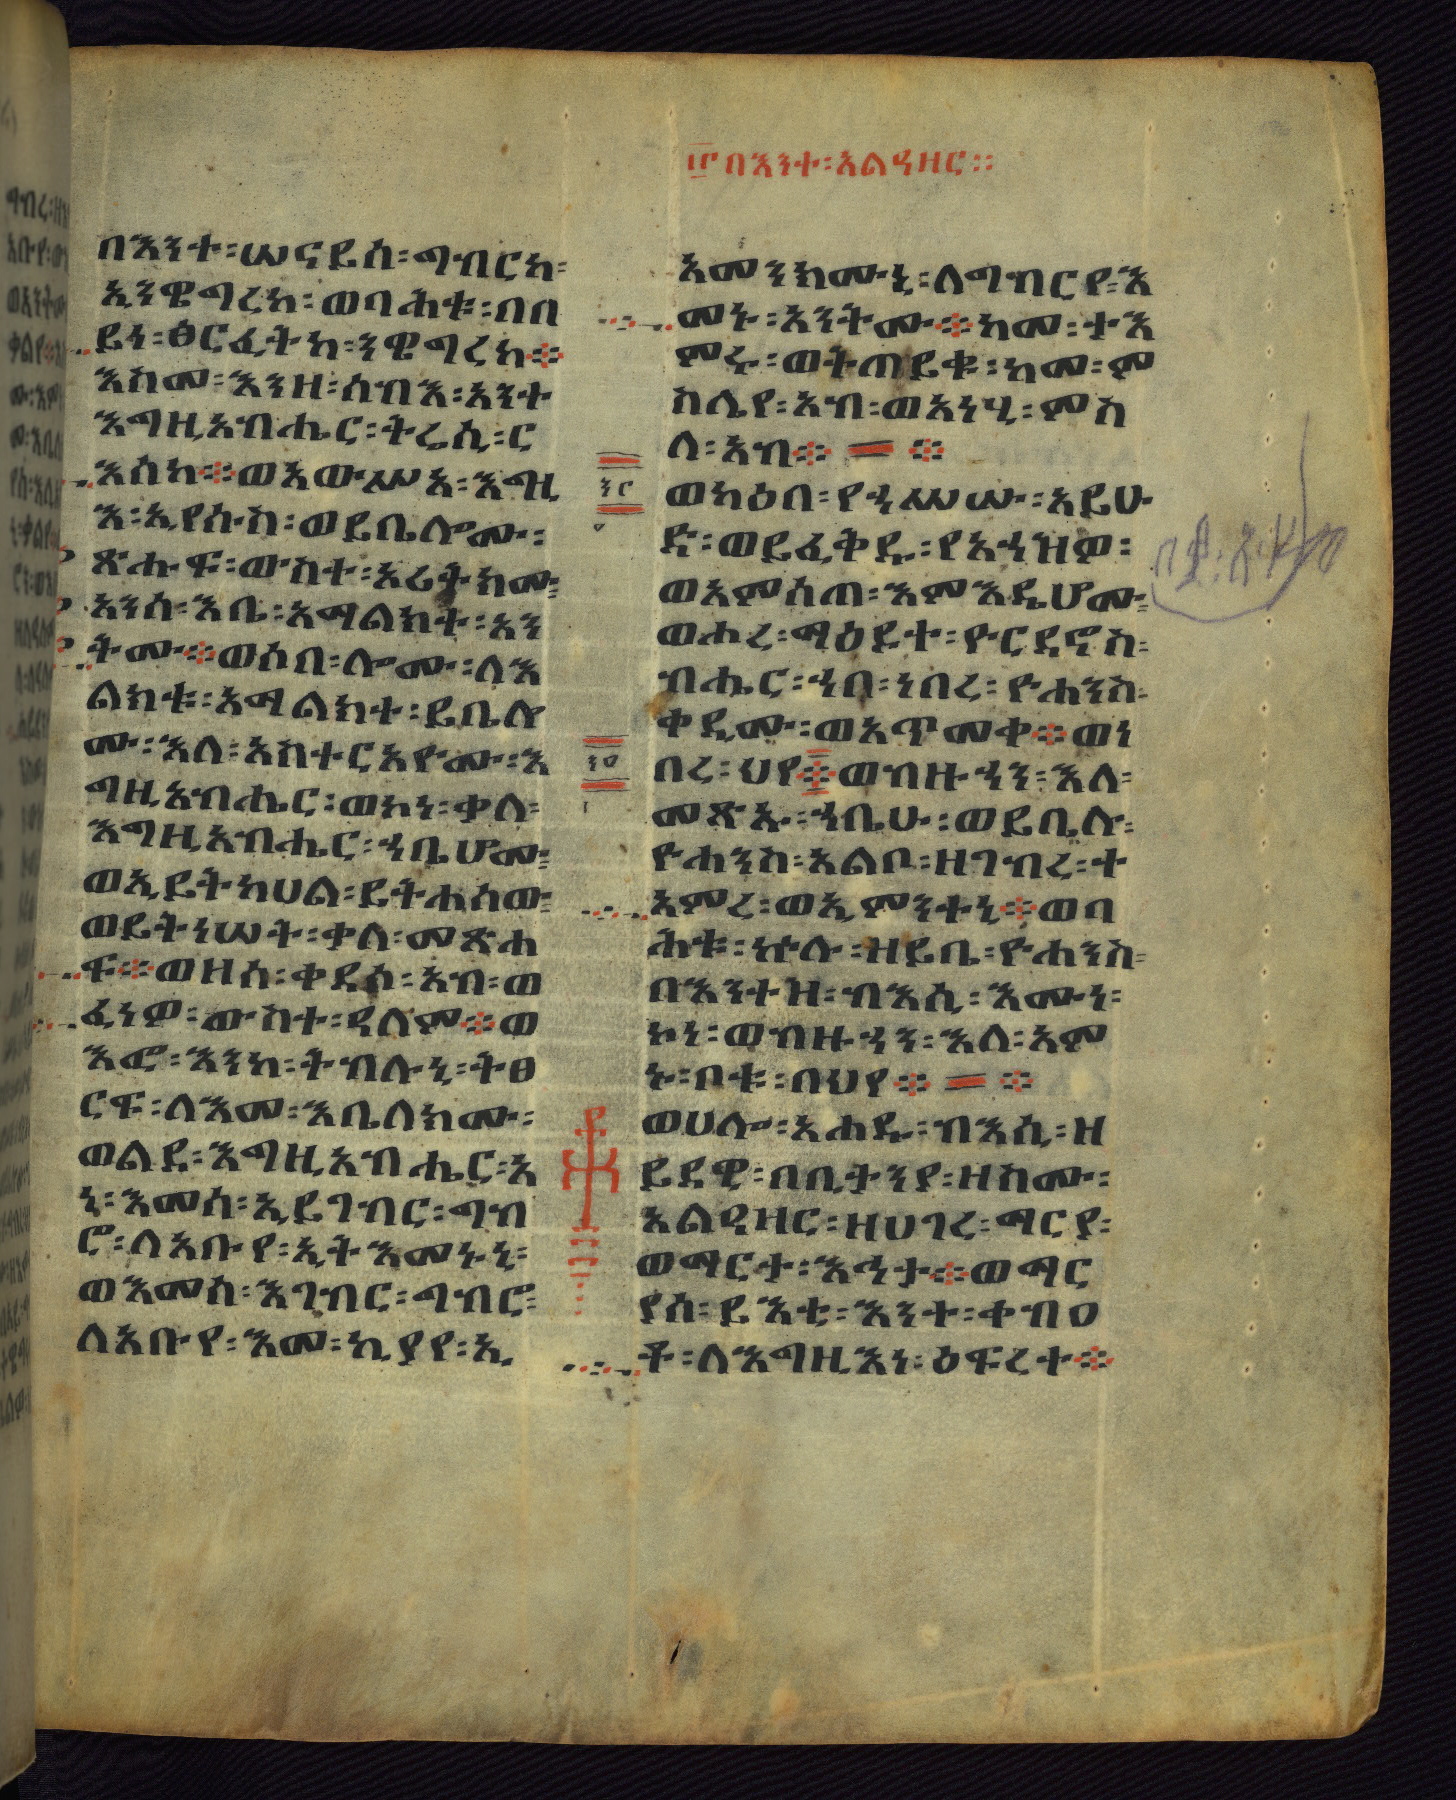 ፲ በእንተ፡አልዓዘር፡፡
በእንተ፡ሠናይስ፡ግብርከ፡
ኢንዌግረከ፡ወባሕቱ፡በበ
ይነ፡ፅርፈትከ፡ንዌግረከ፨
እስመ፡እንዘ፡ሰብእ፡አንተ
እግዚአብሔር፡ትሬሲ፡ር
እሰከ፨ወአውሥአ፡እግዚ
እ፡ኢየሱስ፡ወይቤሎሙ፡
ጽሑፍ፡ውስተ፡አሪትክሙ፡
አንሰ፡እቤ፡አማልክት፡አን
ትሙ፨ወሶበ፡ሎሙ፡ለእ
ልክቱ፡አማልክተ፡ይቤሎ
ሙ፡እለ፡አስተርአዮሙ፡እ
ግዚአብሔር፡ወኮነ፡ቃለ፡
እግዚአብሔር፡ኀቤሆሙ፡
ወኢይትከሀል፡ይትሐሰው፡
ወይትነሠት፡ቃለ፡መጽሐ
ፍ፨ወዘሰ፡ቀደሰ፡አብ፡ወ
ፈነዎ፡ውስተ፡ዓለም፨ወ
እፎ፡እንከ፡ትብሉኒ፡ትፀ
ርፍ፡ለእመ፡እቤለክሙ፡
ወልደ፡እግዚአብሔር፡አ
ነ፡እመሰ፡ኢይገብር፡ግብ
ሮ፡ለአቡየ፡ኢትእመኑኒ፡
ወእመሰ፡እገብር፡ግብሮ፡
ለአቡየ፡እመ፡ኪያየ፡ኢ
አመንክሙኒ፡ለግብርየ፡እ
መኑ፡አንትሙ፨ከመ፡ታእ
ምሩ፡ወትጠይቁ፡ከመ፡ም
ስሌየ፡አብ፡ወአነሂ፡ምስ
ለ፡አብ፨ ፨
ወካዕበ፡የኀሥሡ፡አይሁ
ድ፡ወይፈቅዱ፡የአኀዝዎ፡
ወአምሰጠ፡እምእዴሆሙ፡
ወሖረ፡ማዕዶተ፡ዮርዳኖስ፡
ብሔር፡ኀበ፡ነበረ፡ዮሐንስ፡
ቀዲሙ፡ወአጥመቀ፨ወነ
በረ፡ህየ፨ወብዙኃን፡እለ፡
መጽኡ፡ኀቤሁ፡ወይቤሉ፡
ዮሐንስ፡አልቦ፡ዘገብረ፡ተ
አምረ፡ወኢምንተኒ፨ወባ
ሕቱ፡ኵሉ፡ዘይቤ፡ዮሐንስ፡
በእንተዝ፡ብእሲ፡እሙነ፡
ኮነ፡ወብዙኃን፡እለ፡አም
ኑ፡ቦቱ፡በህየ፨ ፨
ወሀሎ፡አሐዱ፡ብእሲ፡ዘ
ይደዊ፡በቢታንያ፡ዘስሙ፡
አልዓዛር፡ዘሀገረ፡ማርያ፡
ወማርታ፡እኅታ፨ወማር
ያሰ፡ይእቲ፡እንተ፡ቀብዐ
ቶ፡ለእግዚእነ፡ዕፍረተ፨